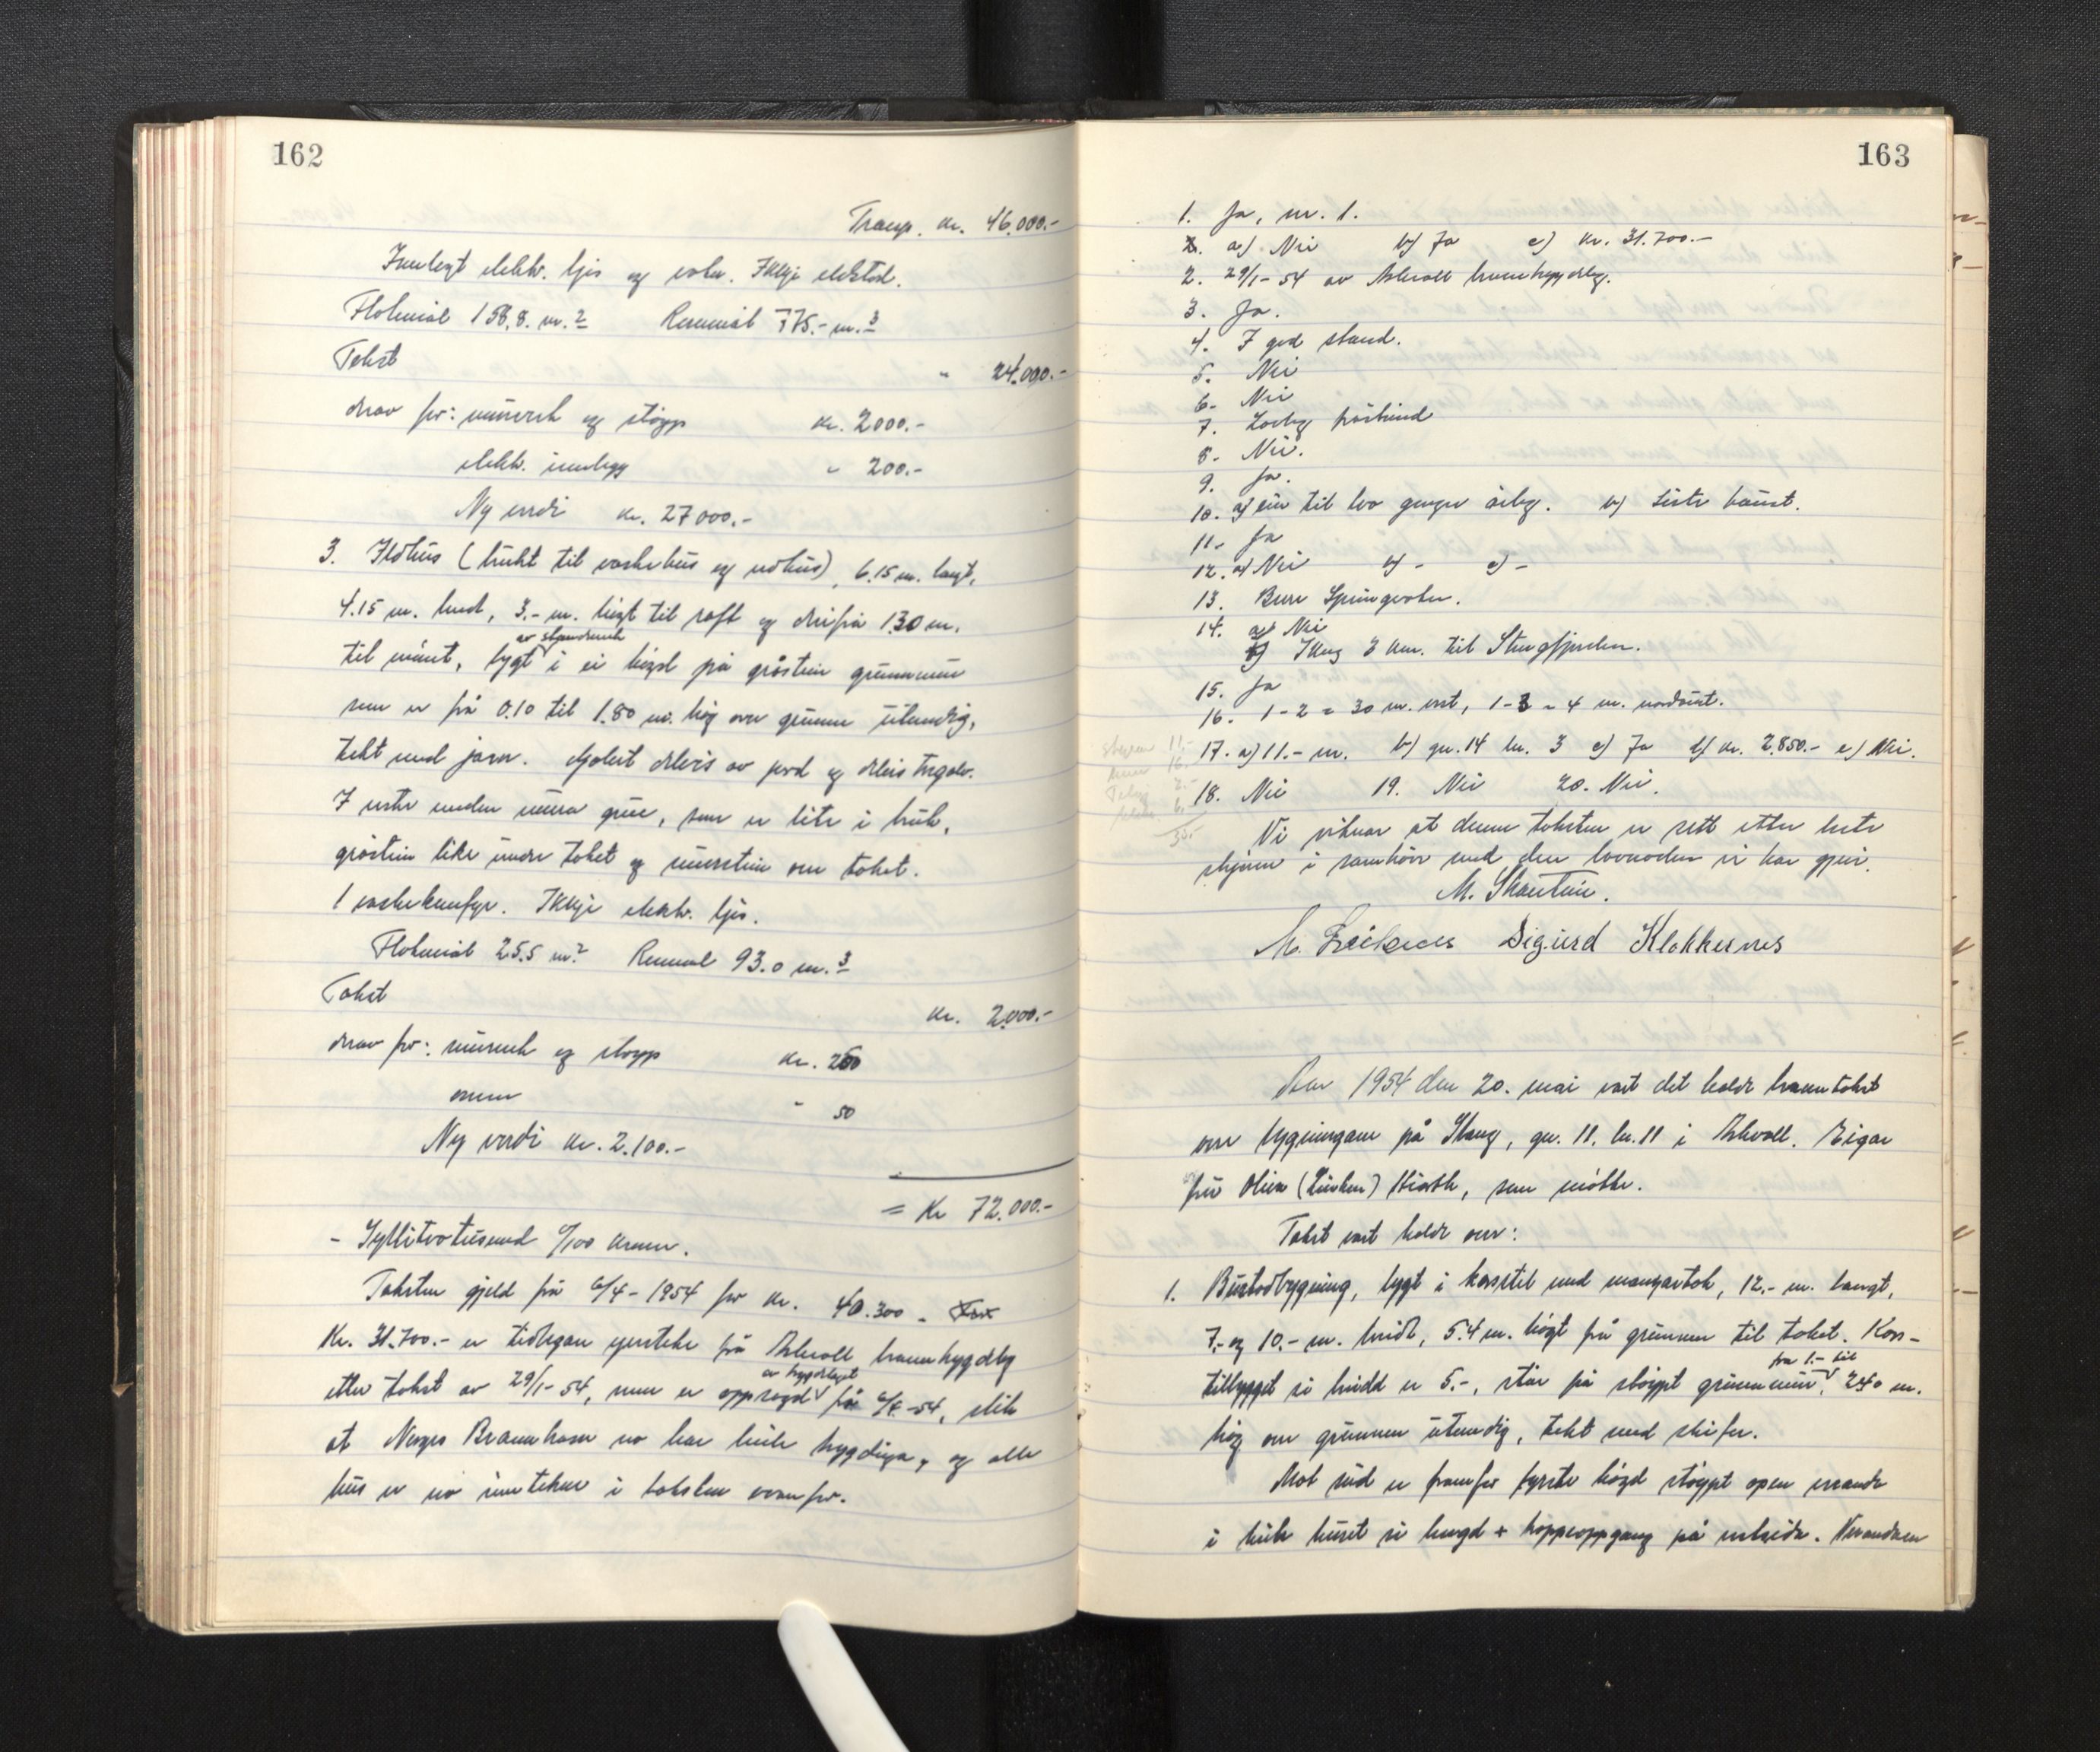 162
Transp. kr. 46.000.-
Innlagt elektr. ljos og vatn. Ikkje elektrod.
Flatemål 158,8. m.2 Romemål 775.- m.3
Takst " 24.000.-
drav for: murverk og støyp kr. 2000.-
elektr. innlegg " 200.-
Ny verdi kr. 27000.-
3. Eldhus (brukt til vaskehus og vedhus), 6.15 m. langt,
4.15 m. breid, 3.- m. høgt til raft og derifrå 1.30 m.
av standverk
til møni, bygt i ei høgd på gråstein grunnmur
som er frå 0.10 til 1.80 m. høg over grunnen utvendig,
tekt med jarn. Golvet delvis av jord og delvis tregolv.
I vestre enden mura grue, som er lite i bruk,
gråstein like under taket og murstein over taket.
1 vaskekomfyr. Ikkje elektr. ljos.
Flatemål 25.5 m.2 Romemål 93.0 m.3
Takst kr. 2.000.-
drav for: murverk og støyp kr. 250
omn " 50
Ny verdi kr. 2.100.-
= Kr 72.000.-
- Syttitvotusund 0/100 kroner.
Taksten gjeld frå 6/4 - 1954 for kr. 40.300 -
Kr. 31.700.- er tidlegare i Askvoll branntrygdelag
av trygdelaget
etter takst av 29/1-54, men er oppsagd frå 6/4-54, slik
at Norges Brannkasse no har heile trygdinga, og alle
hus er no inntekne i taksten ovanfor.
163
1. Ja, nr. 1.
a) Nei b) Ja c) kr. 31.700.-
2. 29/1-54 av Askvoll branntrygdelag.
3. Ja.
4. I god stand.
5. Nei
6. Nei
7.
8. Nei.
9. Ja.
10. a) ein til two gonger årleg. b) Siste haust.
11. Ja
12. a) Nei b) - c) -
13. Berre Springvatn.
14. a) Nei
b) Ikring 3 km. til Stongfjorden.
15. Ja
16. 1-2 = 30 m. vest, 1-3 = 4 m. nordaust.
17. a) 11.- m. b) gn. 14 bn. 3 c) Ja d) kr. 2.850.- e) Nei.
18. Nei 19. Nei 20. Nei.
Vi vitnar at denne taksten er sett etter beste
skjønn i samhøve med den lovnaden vi har gjeve.
M. Skartein.
Sigurd Klokkernes
Aar 1954 den 20. mai vart det halde branntakst
over bygningane på Stang, gn. 11. bn. 11 i Askvoll. Eigar
fru Olina (Linken) Hiorth, som møtte.
Takst vart halde over:
1. Bustadbygning, bygt i krosstil med mansardtak, 12.- m. langt,
7.- og 10.- m. breidt, 5.4 m. høgt frå grunnen til taket. Kors-
fra 1.- til
tilbygget si breidd er 5.-, står på støypt grunnmur, 2.40 m.
høg over grunnen utvendig, tekt med skifer.
Mot sud er framfor fyrste høgd støypt open veranda
i heile huset si lengd + trappeoppgang på vestsida. Verandaen